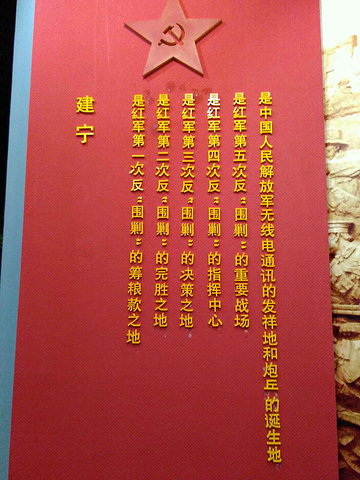 建宁
是红军第一次反“围剿”的筹粮款之地
是红军第二次反“围剿”的完胜之地
是红军第三次反“围剿”的决策之地
是红军第四次反“围剿”的指挥中心
是红军第五次反“围剿”的重要战场
是中国人民解放军无线电通讯的发祥地和炮兵的诞生地